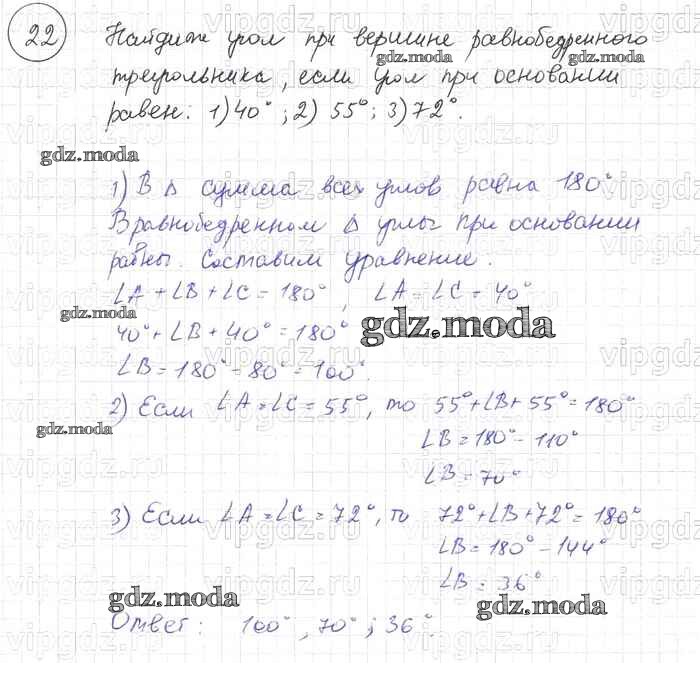 22
Найдите угол при вершине равнобедренного
gdz.moda gdz.moda
треугольника, если угол при основании
равен: 1) 40°; 2) 55°; 3) 72°.
gdz.moda
1) В Δ сумма всех углов равна 180°
В равнобедренном Δ углы при основании
равны. Составим уравнение.
∠A + ∠B + ∠C = 180°, ∠A = ∠C = 40°
gdz.moda
40° + ∠B + 40° = 180°
gdz.moda
∠B = 180° - 80° = 100°.
2) Если ∠A = ∠C = 55°, то 55° + ∠B + 55° = 180°
gdz.moda
∠B = 180° - 110°
∠B = 70°
3) Если ∠A = ∠C = 72°, то 72° + ∠B + 72° = 180°
∠B = 180° - 144°
∠B = 36°
gdz.moda gdz.moda
Ответ: 100°, 70°; 36°.
vipgdz.ru